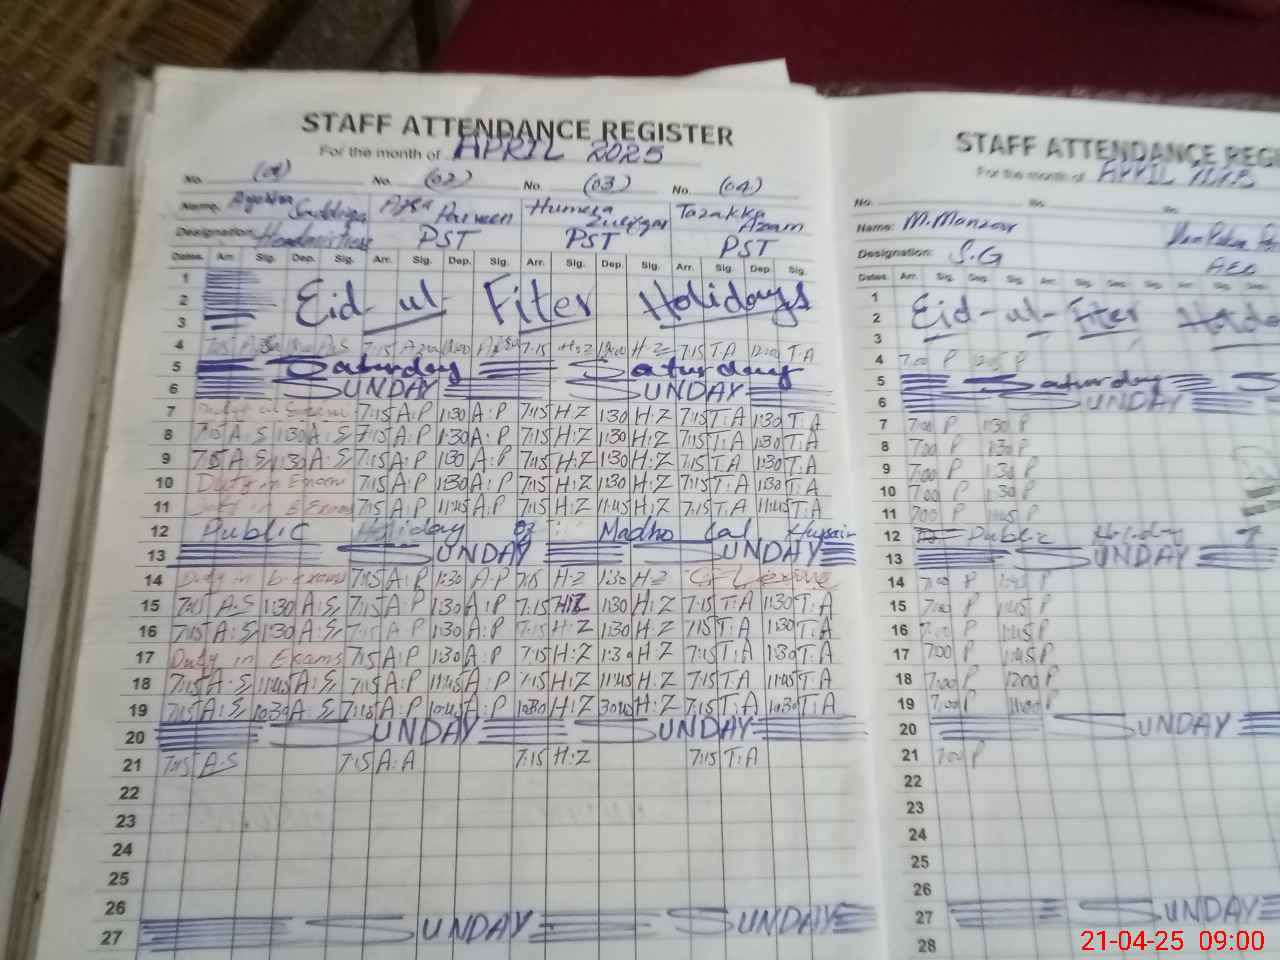 STAFF ATTENDANCE REGISTER
For the month of APRIL 2025
No. (01) No. (02) No. (03) No. (04)
Name: Azra Humera Tazakka
Parween Zulifqar Azam
Designation: Headmistress PST PST PST
Dates. Arr. Sig. Dep. Sig. Arr. Sig. Dep. Sig. Arr. Sig. Dep. Sig. Arr. Sig. Dep. Sig.
1
2 Eid-ul-Fiter Holidays
3
4 7:15 7:15 7:15 H:Z 12:00 H:Z 7:15 T:A 12:00 T:A
5 Saturday Saturday
6 SUNDAY SUNDAY
7 7:15 A:P 1:30 A:P 7:15 H:Z 1:30 H:Z 7:15 T:A 1:30 T:A
8 7:15 A:S 1:30 A:S 7:15 A:P 1:30 A:P 7:15 H:Z 1:30 H:Z 7:15 T:A 1:30 T:A
9 7:15 A:S 1:30 A:S 7:15 A:P 1:30 A:P 7:15 H:Z 1:30 H:Z 7:15 T:A 1:30 T:A
10 Duty in Exams 7:15 A:P 1:30 A:P 7:15 H:Z 1:30 H:Z 7:15 T:A 1:30 T:A
11 7:15 A:P 11:45 A:P 7:15 H:Z 11:45 H:Z 7:15 T:A 11:45 T:A
12 Public Holiday of Madho Lal Hussain
13 SUNDAY SUNDAY
14 Duty in exams 7:15 A:P 1:30 A:P 7:15 H:Z 1:30 H:Z
15 A-S 1:30 A:S 7:15 A:P 1:30 A:P 7:15 H:Z 1:30 H:Z 7:15 T:A 1:30 T:A
16 7:15 A:S 1:30 A:S 7:15 A:P 1:30 A:P 7:15 H:Z 1:30 H:Z 7:15 T:A 1:30 T:A
17 Duty in Exams 7:15 A:P 1:30 A:P 7:15 H:Z 1:30 H:Z 7:15 T:A 1:30 T:A
18 7:15 A:S 11:45 A:S 7:15 A:P 11:45 A:P 7:15 H:Z 11:45 H:Z 7:15 T:A 11:45 T:A
19 7:15 A:S 10:30 A:S 7:15 A:P A:P 10:30 H:Z H:Z 7:15 T:A 10:30 T:A
20 SUNDAY SUNDAY
21 7:15 A-S 7:15 A:A 7:15 H:Z 7:15 T:A
22
23
24
25
26
27 SUNDAY SUNDAY
STAFF ATTENDANCE REG
For the month of APRIL 2025
No.
Name: M. Manzoor
Designation: S.G AEO
Dates. Arr. Sig. Dep. Sig.
1
2 Eid-ul-Fiter
3
4 7:00 P 12:00 P
5 Saturday
6 SUNDAY
7 7:00 P 1:30 P
8 7:00 P 1:30 P
9 7:00 P 1:30 P
10 7:00 P 1:30 P
11 7:00 P P
12 Public Holiday
13 SUNDAY
14 7:00 P P
15 7:00 P 1:45 P
16 7:00 P 1:45 P
17 7:00 P 1:45 P
18 7:00 P 12:00 P
19 7:00 P P
20 SUNDAY
21 7:00 P
22
23
24
25
26
27 SUNDAY
28
21-04-25 09:00